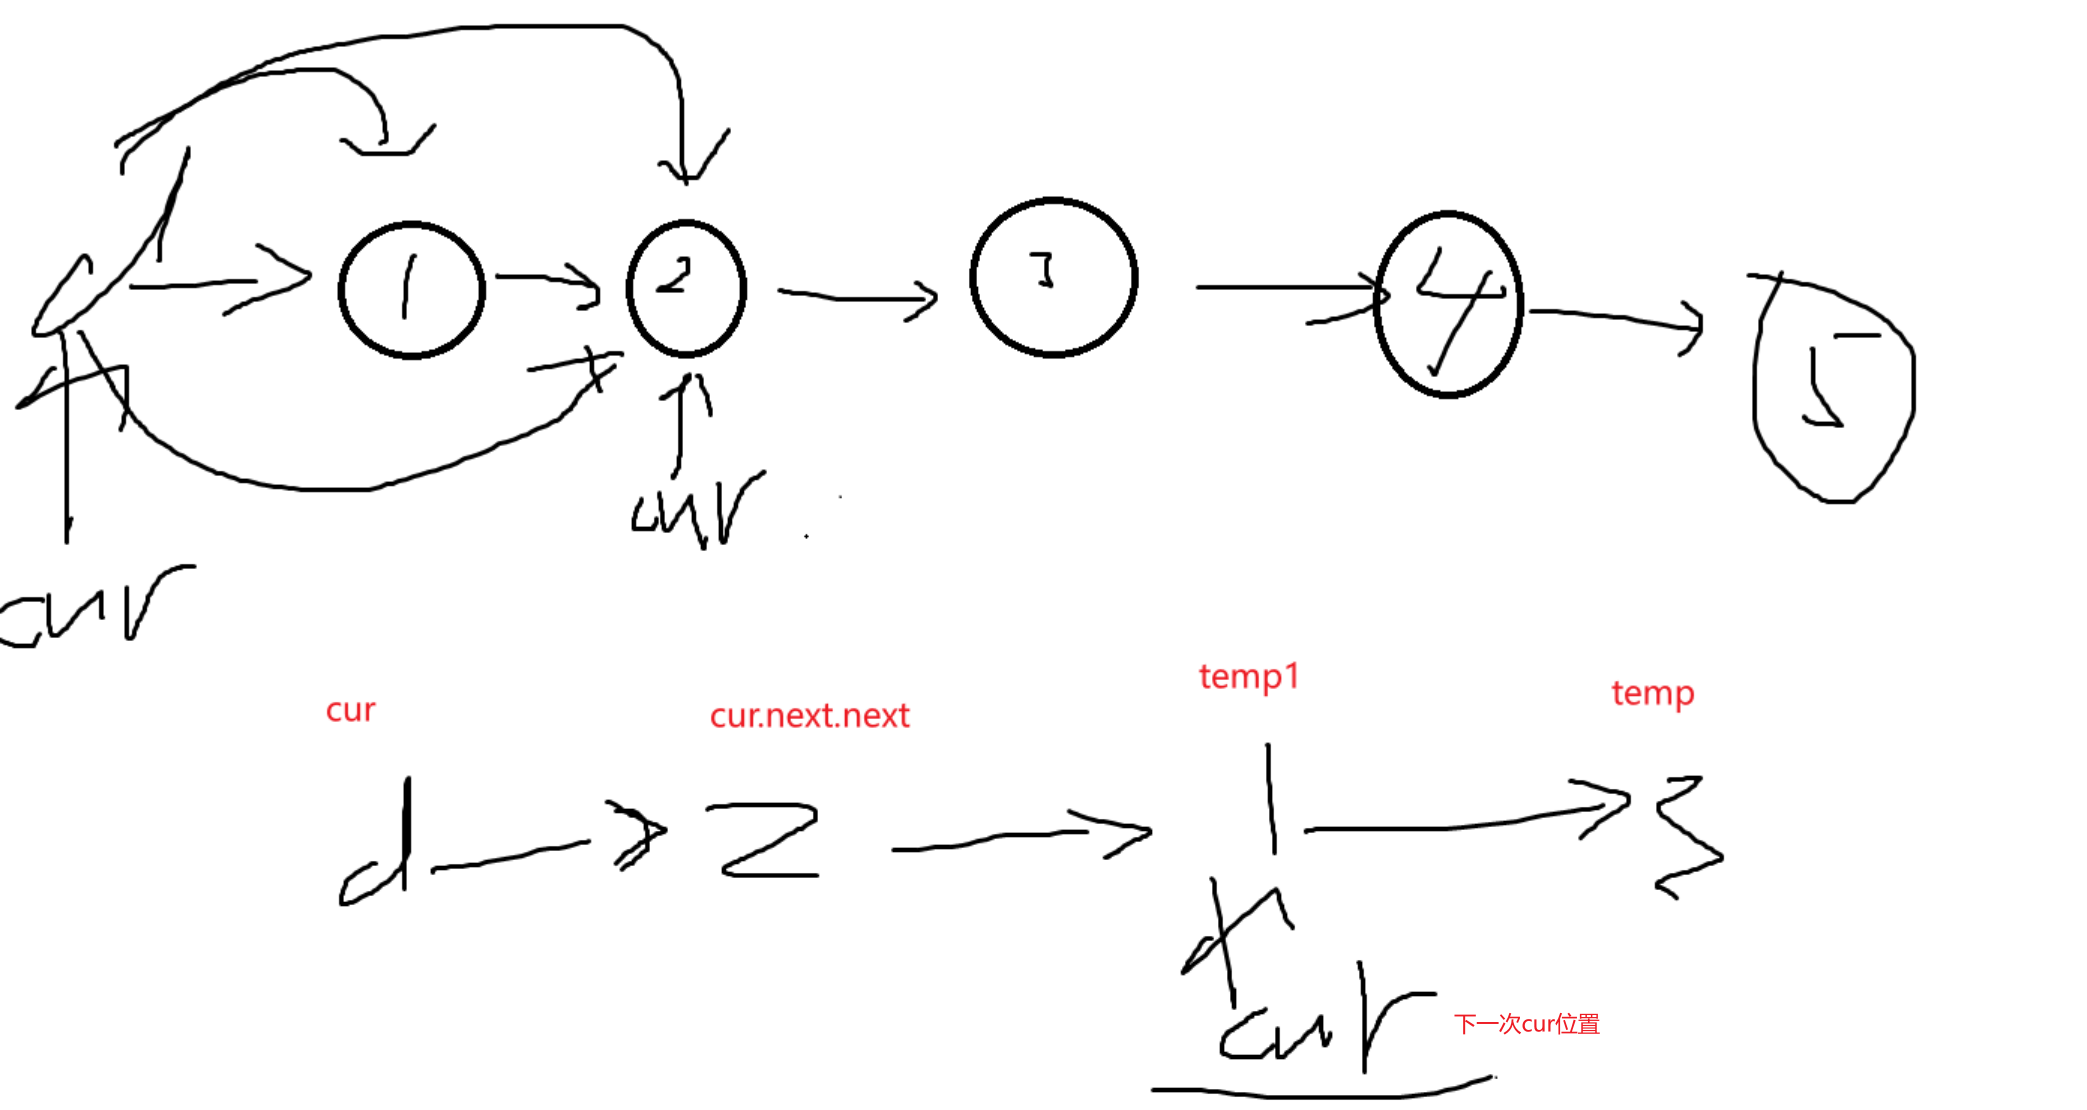 d
1
2
3
4
5
cur
cur
cur
cur.next.next
temp1
temp
d
2
1
3
cur
下一次cur位置